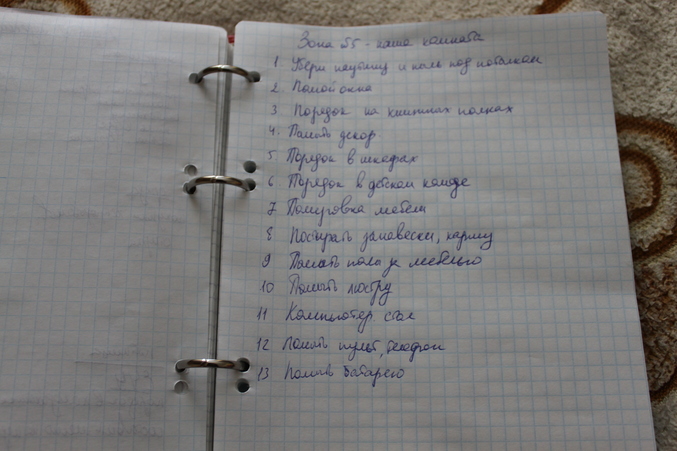 Зона №5 - наша комната
1 Убери паутину и пыль под потолком
2 Помой окна
3 Порядок на книжных полках
4. Помыть декор
5 Порядок в шкафах
6 Порядок в детском комоде
7 Полировка мебели
8 Постирать занавески,
9 Помыть пола за мебелью
10 Помыть люстру
11 Компьютер. стол
12 Помыть пульт, телефон
13 Помыть батарею